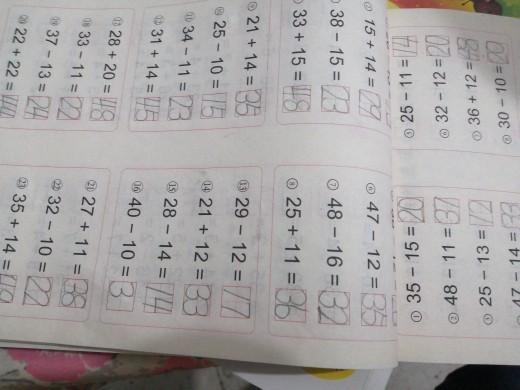 ① 35 − 15 = 20
② 48 − 11 = 37
③ 25 − 13 = 12
47 − 14 = 33
⑤ 25 − 11 = 14
⑥ 32 − 12 = 20
⑦ 36 + 12 = 48
⑧ 30 − 10 = 20
15 + 14 = 29
38 − 15 = 23
33 + 15 = 48
⑥ 47 − 12 = 35
⑦ 48 − 16 = 32
⑧ 25 + 11 = 36
⑨ 21 + 14 = 35
⑩ 25 − 10 = 15
⑪ 34 − 11 = 23
⑫ 31 + 14 = 45
⑬ 29 − 12 = 17
⑭ 21 + 12 = 33
⑮ 28 − 14 = 14
⑯ 40 − 10 = 3
⑰ 28 + 20 = 48
⑱ 33 − 11 = 22
⑲ 37 − 13 = 24
⑳ 22 + 22 = 44
㉑ 27 + 11 = 38
㉒ 32 − 10 = 22
㉓ 35 + 14 = 49